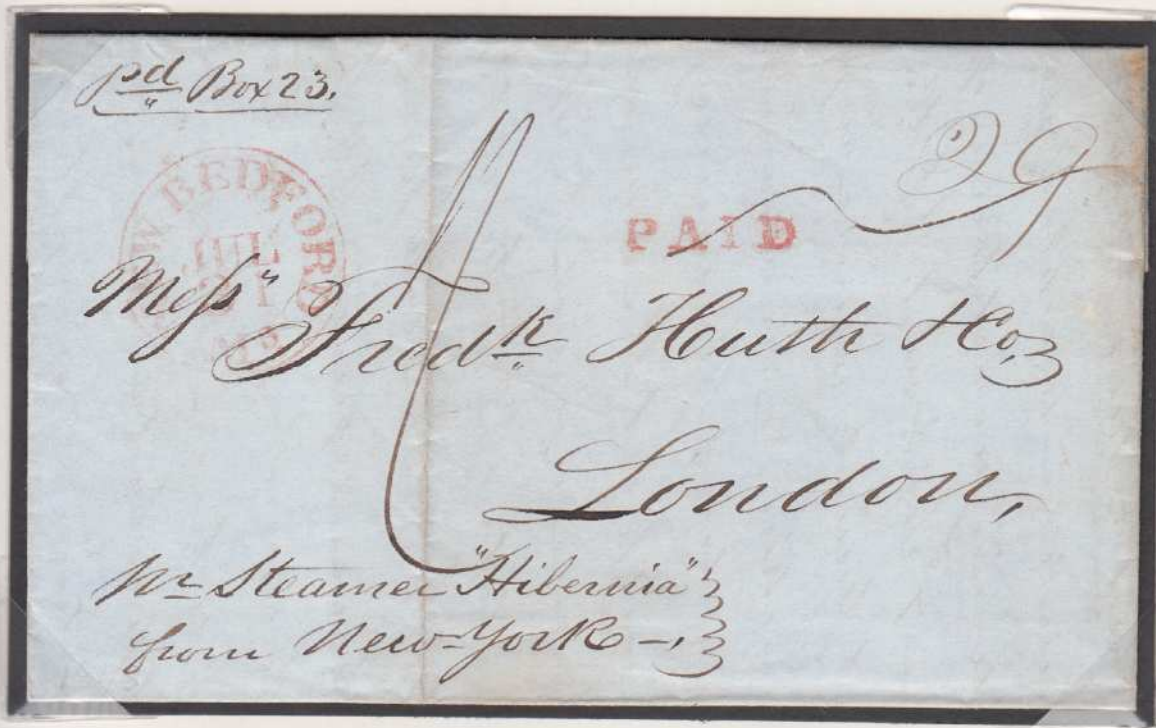 pd Box 23.
29
NEW BEDFORD
JUL
PAID
Messrs Fredk Huth & Co,
London,
pr Steamer "Hibernia"
from New-York -,